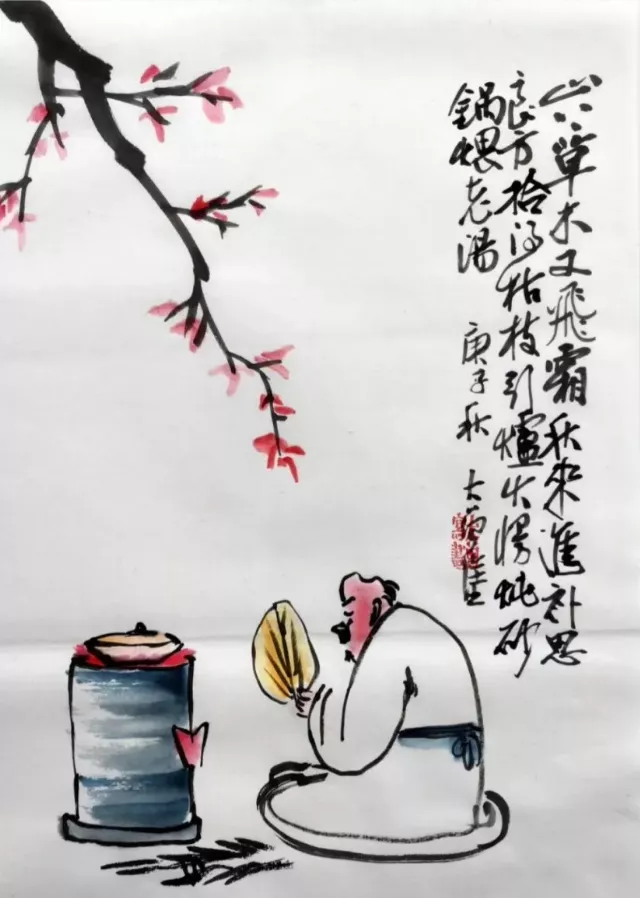 山草木又飛霜秋來進補思
良方拾得枯枝引爐火慢炖砂
鍋煨老湯
庚子秋 大